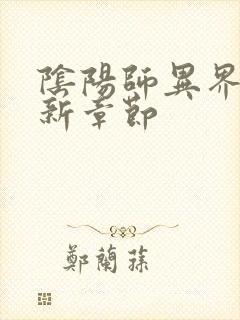 陰陽師異界
新章節
鄭蘭蓀